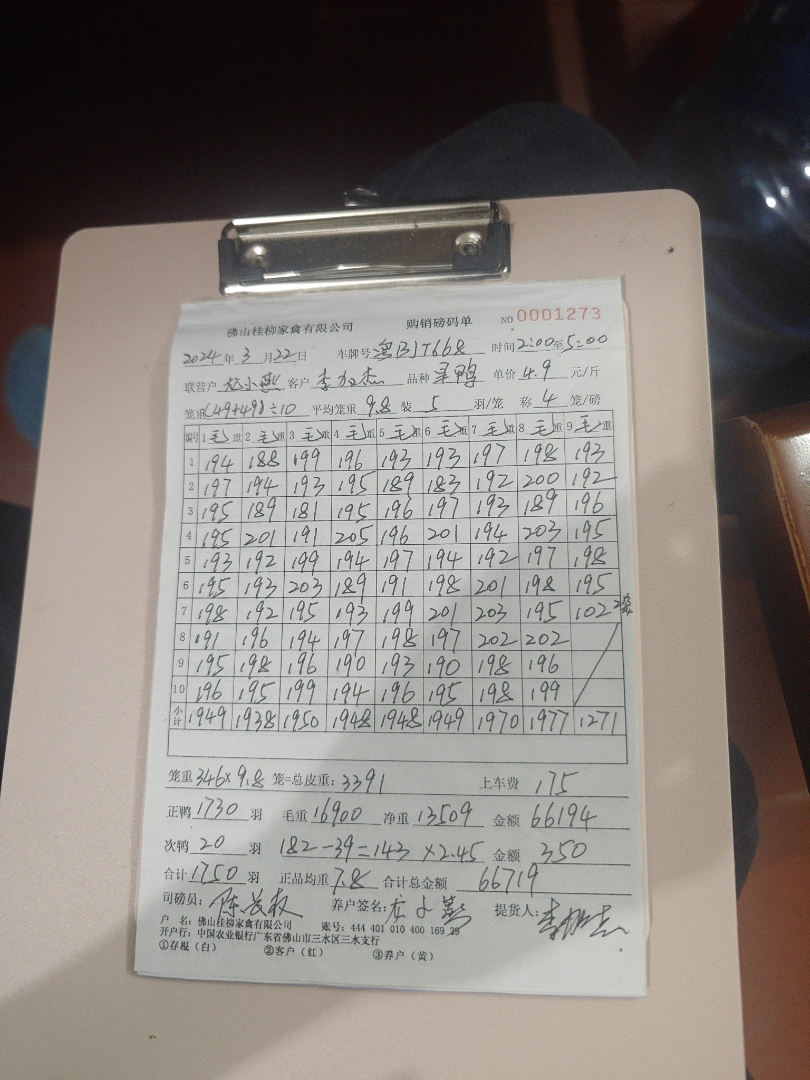 佛山桂柳家禽有限公司 购销磅码单 NO 0001273
2024年 3月22日 车牌号 粤BJT668 时间2:00至5:00
联营户 客户 品种 单价 4.9 元/斤
笼重(49+49)÷10 平均笼重 9.8 装 5 羽/笼 称 4 笼/磅
编号 1毛重 2毛重 3毛重 4毛重 5毛重 6毛重 7毛重 8毛重 9毛重
1 194 188 199 196 193 193 197 198 193
2 197 194 193 195 189 183 192 200 192
3 195 189 181 195 196 197 193 189 196
4 195 201 191 205 196 201 194 203 195
5 193 192 199 194 197 194 192 197 198
6 195 193 203 189 191 198 201 198 195
7 198 192 195 193 199 201 203 195 102
8 191 196 194 197 198 197 202 202
9 195 198 196 190 193 190 198 196
10 196 195 199 194 196 195 198 199
小计 1949 1938 1950 1948 1948 1949 1970 1977 1271
笼重 346×9.8 笼=总皮重:3391 上车费 175
正鸭 1730 羽 毛重 16900 净重 13509 金额 66194
次鸭 20 羽 182-39=143 ×2.45 金额 350
合计 1750 羽 正品均重 7.8 合计总金额 66719
司磅员: 养户签名: 提货人:
户 名:佛山桂柳家禽有限公司 账号:444 401 010 400 169 29
开户行:中国农业银行广东省佛山市三水区三水支行
①存根(白) ②客户(红) ③养户(黄)